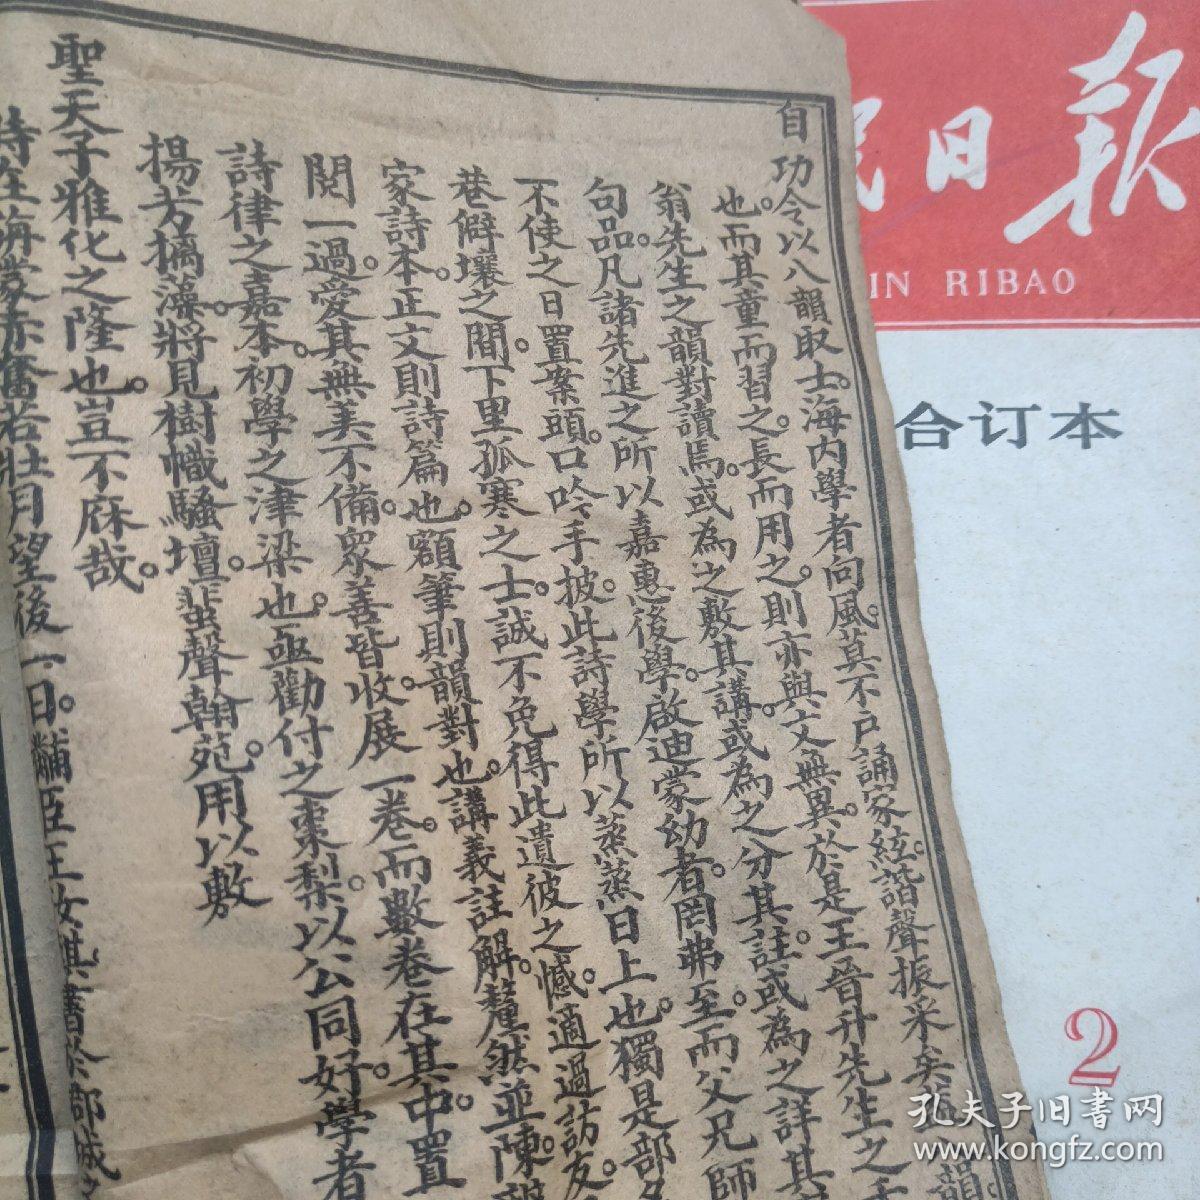 自功令以八韻取士。海内學者向風。莫不戶誦家絃。諧聲振采矣。蓋韻
也。而其童而習之。長而用之。則亦與文無異。於是王晉升先生之千
翁先生之韻對讀焉。或為之敷其講。或為之分其註。或為之詳其
句品。凡諸先進之所以嘉惠後學。啟迪蒙幼者。罔弗至。而父兄師
不使之日置案頭。口吟手披。此詩學所以蒸蒸日上也。獨是部
巷僻壤之間。下里孤寒之士。誠不免得此遺彼之憾。適過訪友
家詩本。正文則詩篇也。額筆則韻對也。講義註解。釐然並陳。
閱一過。愛其無美不備。眾善皆收。展一卷。而數卷在其中。置
詩律之嘉本。初學之津梁也。亟勸付之棗梨。以公同好。學者
揚芳摛藻。將見樹幟騷壇。蜚聲翰苑。用以敷
聖天子雅化之隆也。豈不庥哉。
時在旃蒙赤奮若壯月望後一日。黼臣王汝麒書於郡城
民日報
IN RIBAO
合订本
2
孔夫子旧书网
www.kongfz.com